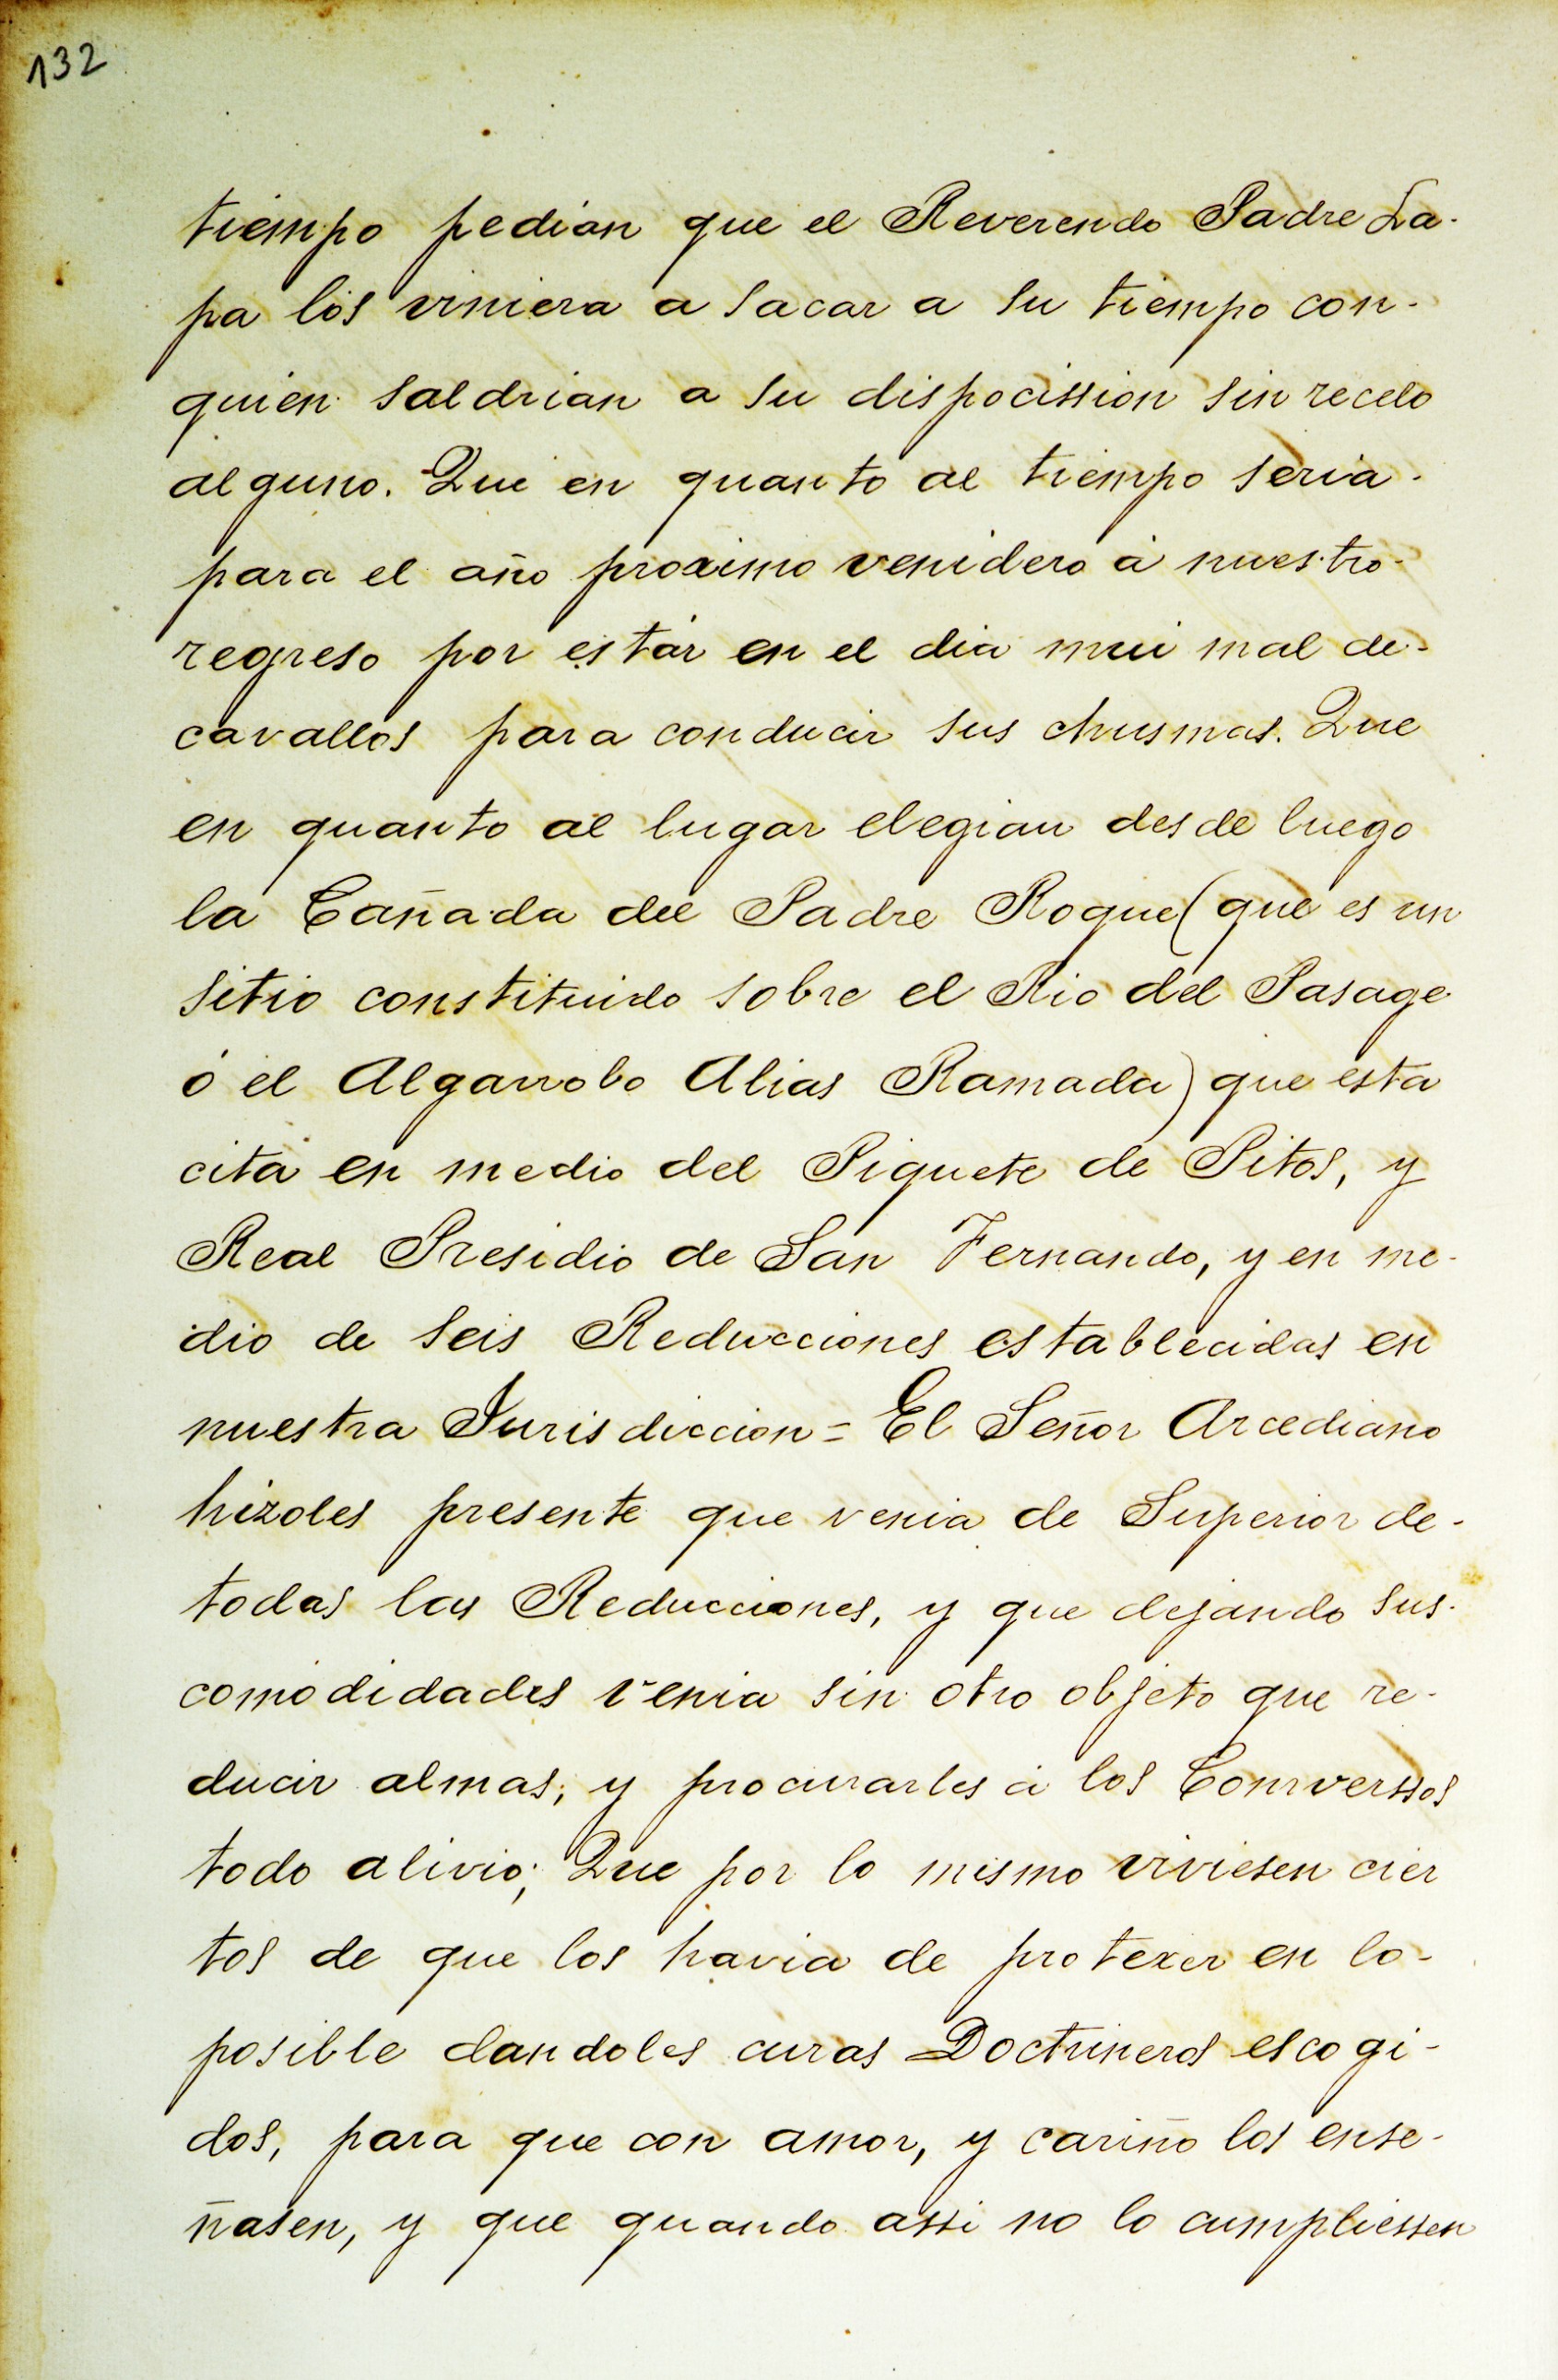 132
tiempo pedian que el Reverendo Padre La-
pa los viniera a sacar a su tiempo con-
quien saldrian a su dispocission sin recelo
alguno. Que en quanto al tiempo seria-
para el año proximo venidero á nuestro-
regreso por estár en el dia mui mal de-
cavallos para conducir sus chusmas. Que
en quanto al lugar elegian desde luego
la Cañada del Padre Roque (que es un
sitio constituido sobre el Rio del Pasage
ó el Algarrobo Alias Ramada) que esta
cita en medio del Piquete de Pitos, y
Real Presidio de San Fernando, y en me-
dio de seis Reducciones establecidas en
nuestra Jurisdiccion = El Señor Arcediano
hizoles presente que venia de Superior de-
todas las Reducciones, y que dejando sus-
comodidades venia sin otro objeto que re-
ducir almas, y procurarles á los Converssos
todo alivio; Que por lo mismo viviesen cier
tos de que los havia de protexer en lo-
posible dandoles curas Doctrineros escogi-
dos, para que con amor, y cariño los ense-
ñasen, y que quando assi no lo cumpliessen